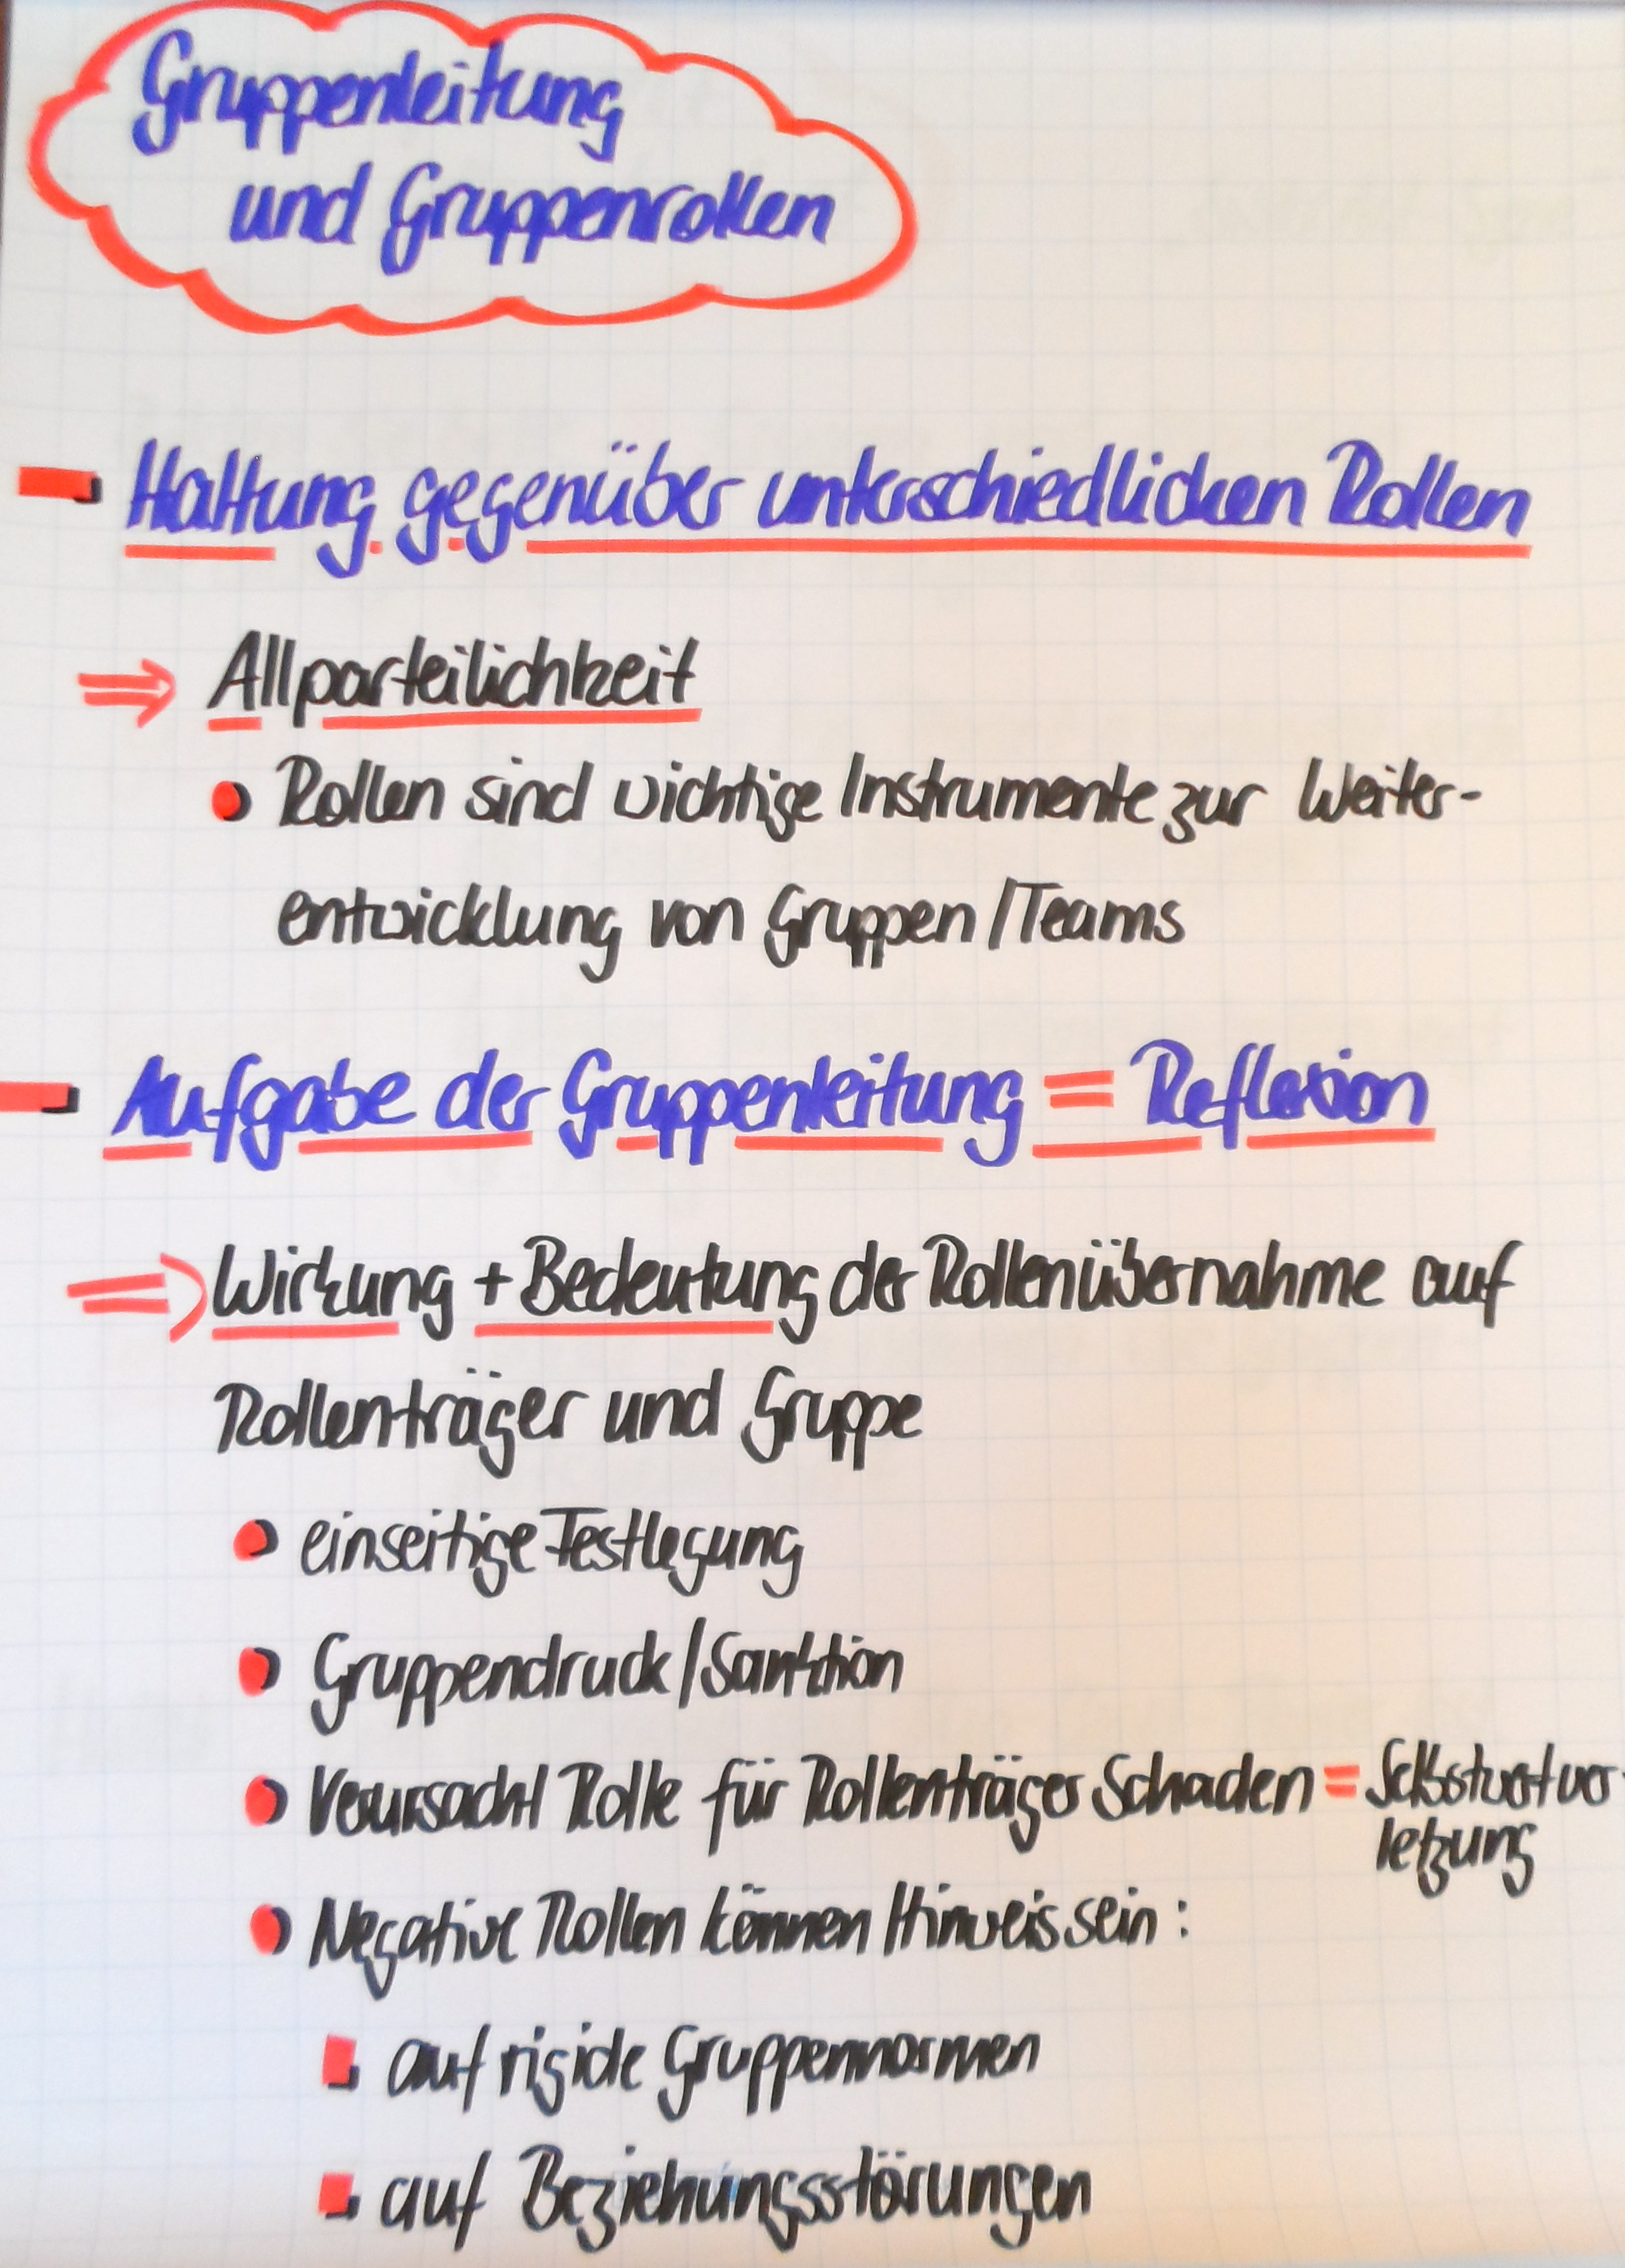 Gruppenleitung
und Gruppenrollen
Haltung gegenüber unterschiedlichen Rollen
⇒ Allparteilichkeit
Rollen sind wichtige Instrumente zur Weiter-
entwicklung von Gruppen/Teams
Aufgabe der Gruppenleitung = Reflexion
⇒ Wirkung + Bedeutung der Rollenübernahme auf
Rollenträger und Gruppe
einseitige Festlegung
Gruppendruck/Sanktion
Verursacht Rolle für Rollenträger Schaden = Selbstwertver-
letzung
Negative Rollen können Hinweis sein:
auf rigide Gruppennormen
auf Beziehungsstörungen